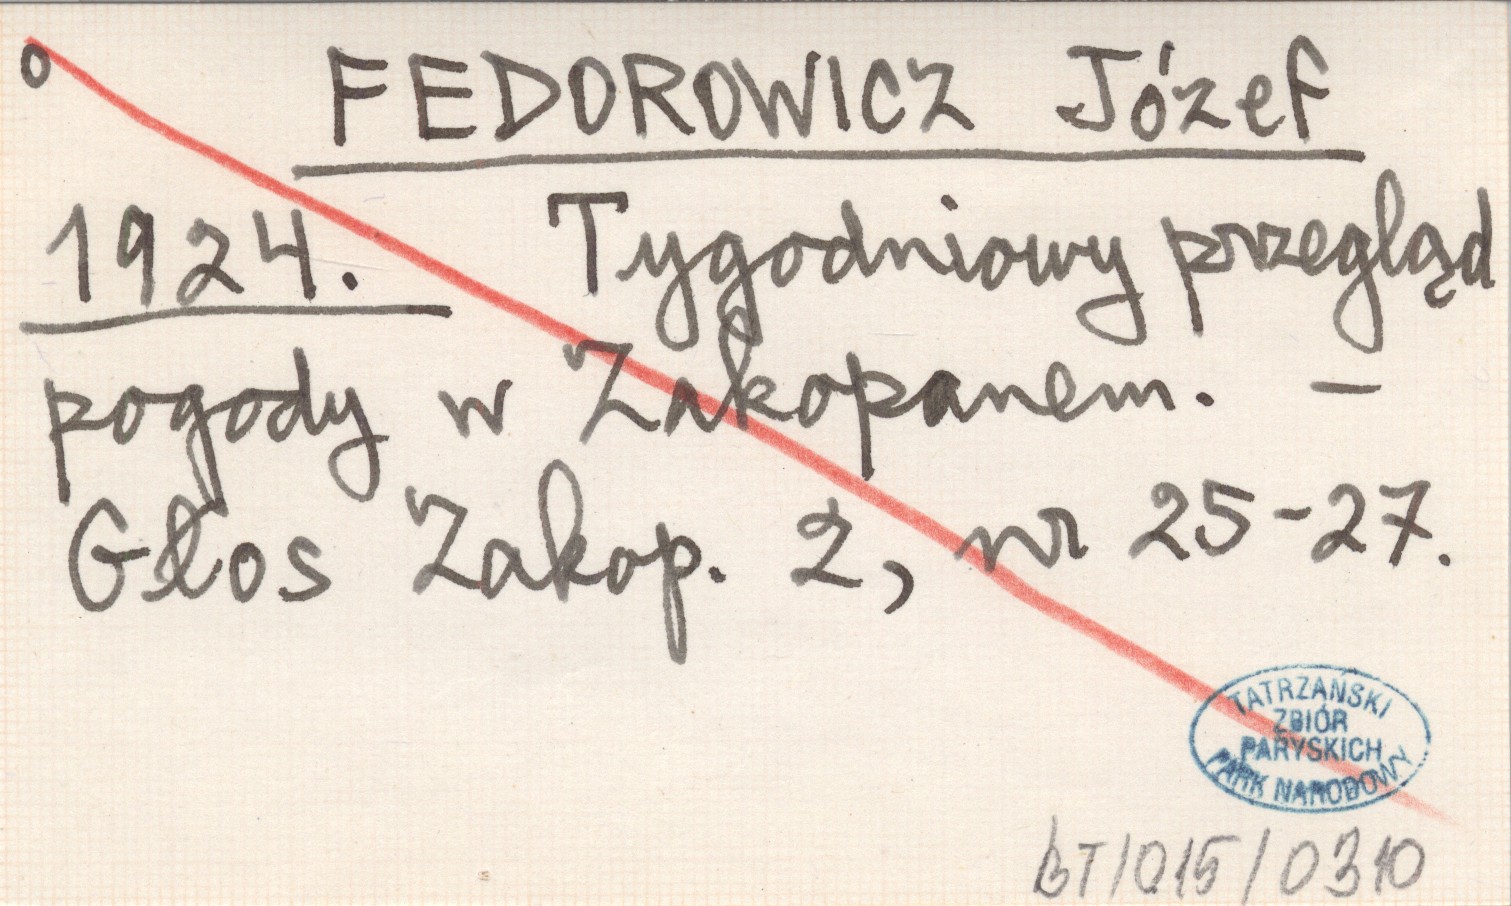 o FEDOROWICZ Józef
1924. Tygodniowy przegląd
pogody w Zakopanem. –
Głos Zakop. 2, nr 25-27.
TATRZAŃSKI
ZBIÓR
PARYSKICH
PARK NARODOWY
BT/015/0310